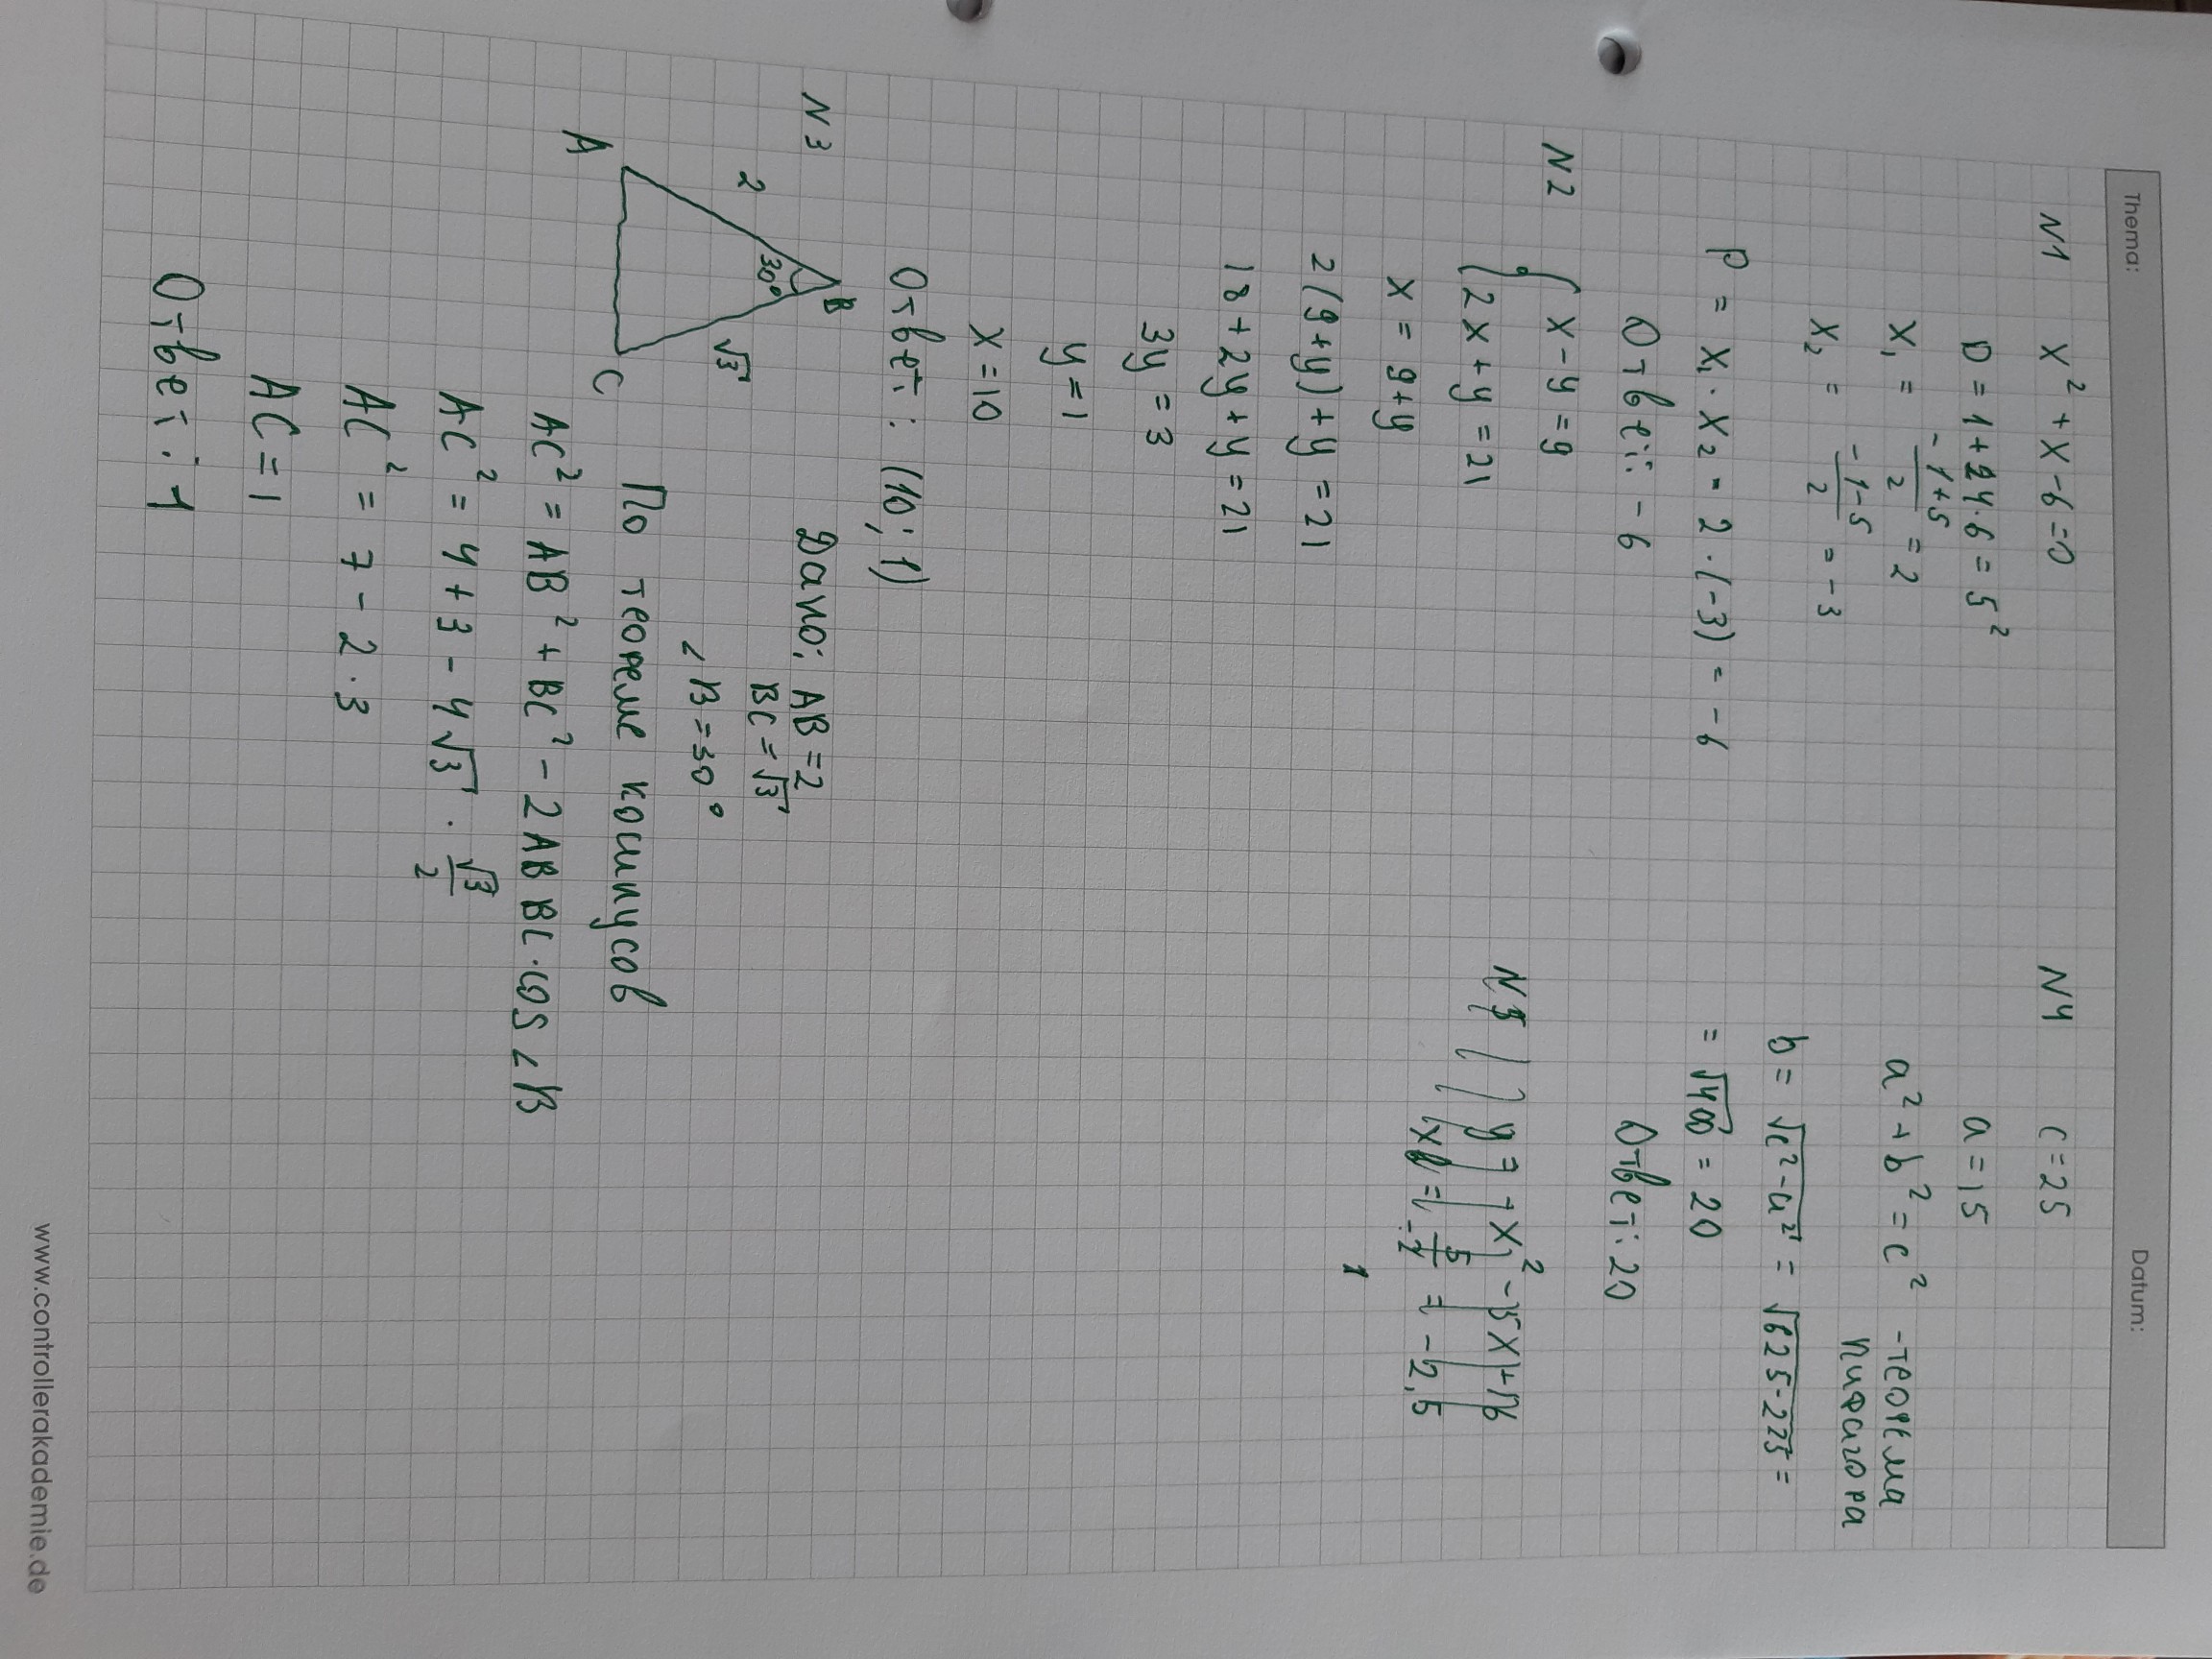 Thema:
Datum:
N1 x² + x - 6 = 0
D = 1 + 4 · 6 = 5²
x₁ = (-1+5)/2 = 2
x₂ = (-1-5)/2 = -3
P = x₁ · x₂ = 2 · (-3) = -6
Ответ: -6
N2 { x - y = 9
{ 2x + y = 21
x = 9 + y
2(9+y) + y = 21
18 + 2y + y = 21
3y = 3
y = 1
x = 10
Ответ: (10; 1)
N3
A
2
B
30°
√3
C
Дано: AB = 2
BC = √3
∠B = 30°
По теореме косинусов
AC² = AB² + BC² - 2AB BC · cos ∠B
AC² = 4 + 3 - 4√3 · √3/2
AC² = 7 - 2 · 3
AC = 1
Ответ: 1
N4 c = 25
a = 15
a² + b² = c² - теорема
Пифагора
b = √c² - a² = √625 - 225 =
= √400 = 20
Ответ: 20
= -2,5
www.controllerakademie.de